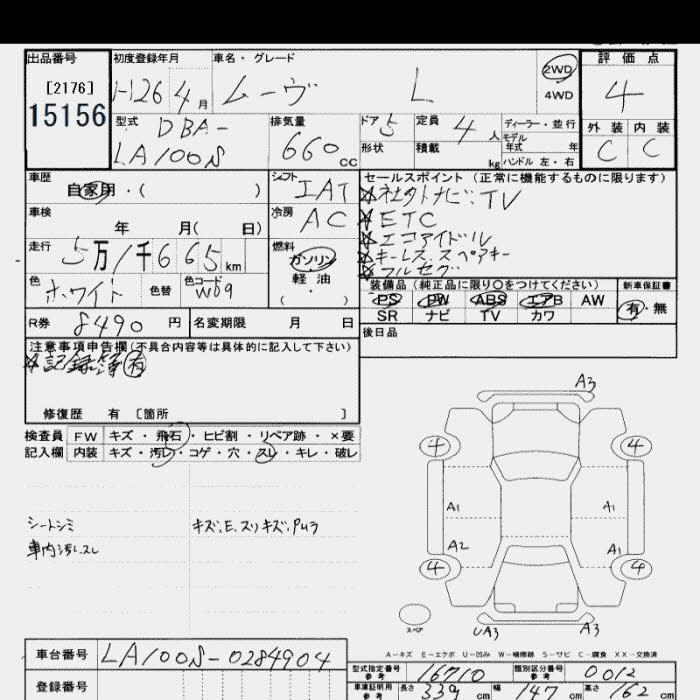 出品番号 初度登録年月 車名・グレード 評価点
[2176] H26 4月 ムーヴ L 2WD 4WD 4
15156
型式 DBA- 排気量 ドア 5 定員 4人 ディーラー・並行 外装 内装
LA100S 660cc 形状 積載 kg モデル年式 年 C C
ハンドル 左・右
車歴 自家用・( ) シフト IAT セールスポイント (正常に機能するものに限ります)
☆社外ナビ・TV
車検 年 月( 日) 冷房 AC ☆ETC
☆エコアイドル
走行 5万1千665km 燃料 ガソリン ☆キーレス、スペアキー
☆フルセグ
色 ホワイト 色替 色コード W09 軽油
( ・ )
装備品 (純正品に限り○をつけてください) 新車保証書
PS PW ABS エアB AW 有・無
SR ナビ TV カワ
R券 8490円 名変期限 月 日 後日品
注意事項申告欄(不具合内容等は具体的に記入して下さい)
☆記録簿有
修復歴 有 [箇所 ]
検査員 FW キズ・飛石・ヒビ割・リペア跡・×要
記入欄 内装 キズ・汚レ・コゲ・穴・スレ・キレ・破レ
シートシミ キズ、E、スリキズ、
車内汚レスレ
A3
4 4
A1 A1
A2 A1
4 4
スペア UA3 A3
A−キズ E−エクボ U−凹み W−補修跡 S−サビ C−腐食 XX−交換済
車台番号 LA100S-0284904
型式指定番号 参考 16710 類別区分番号 参考 0012
登録番号 車庫証明用 参考 長さ 339cm 幅 147cm 高さ 162cm